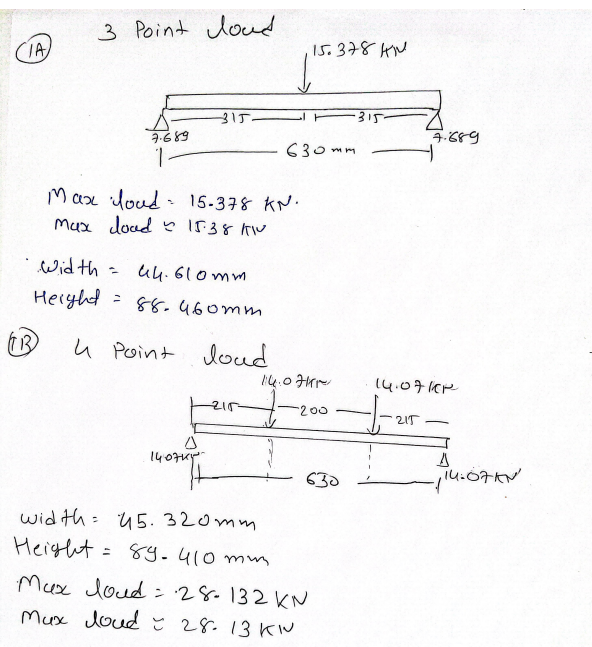 1A 3 Point load
15.378 KN
315 315
7.689 7.689
630 mm
Max load = 15.378 KN.
Max load ≈ 15.38 KN
Width = 44.610mm
Height = 88.460mm
1B 4 Point load
14.07KN 14.07KN
215 200 215
14.07KN 14.07KN
630
width = 45.320mm
Height = 89.410 mm
Max load = 28.132 KN
Max load ≈ 28.13 KN